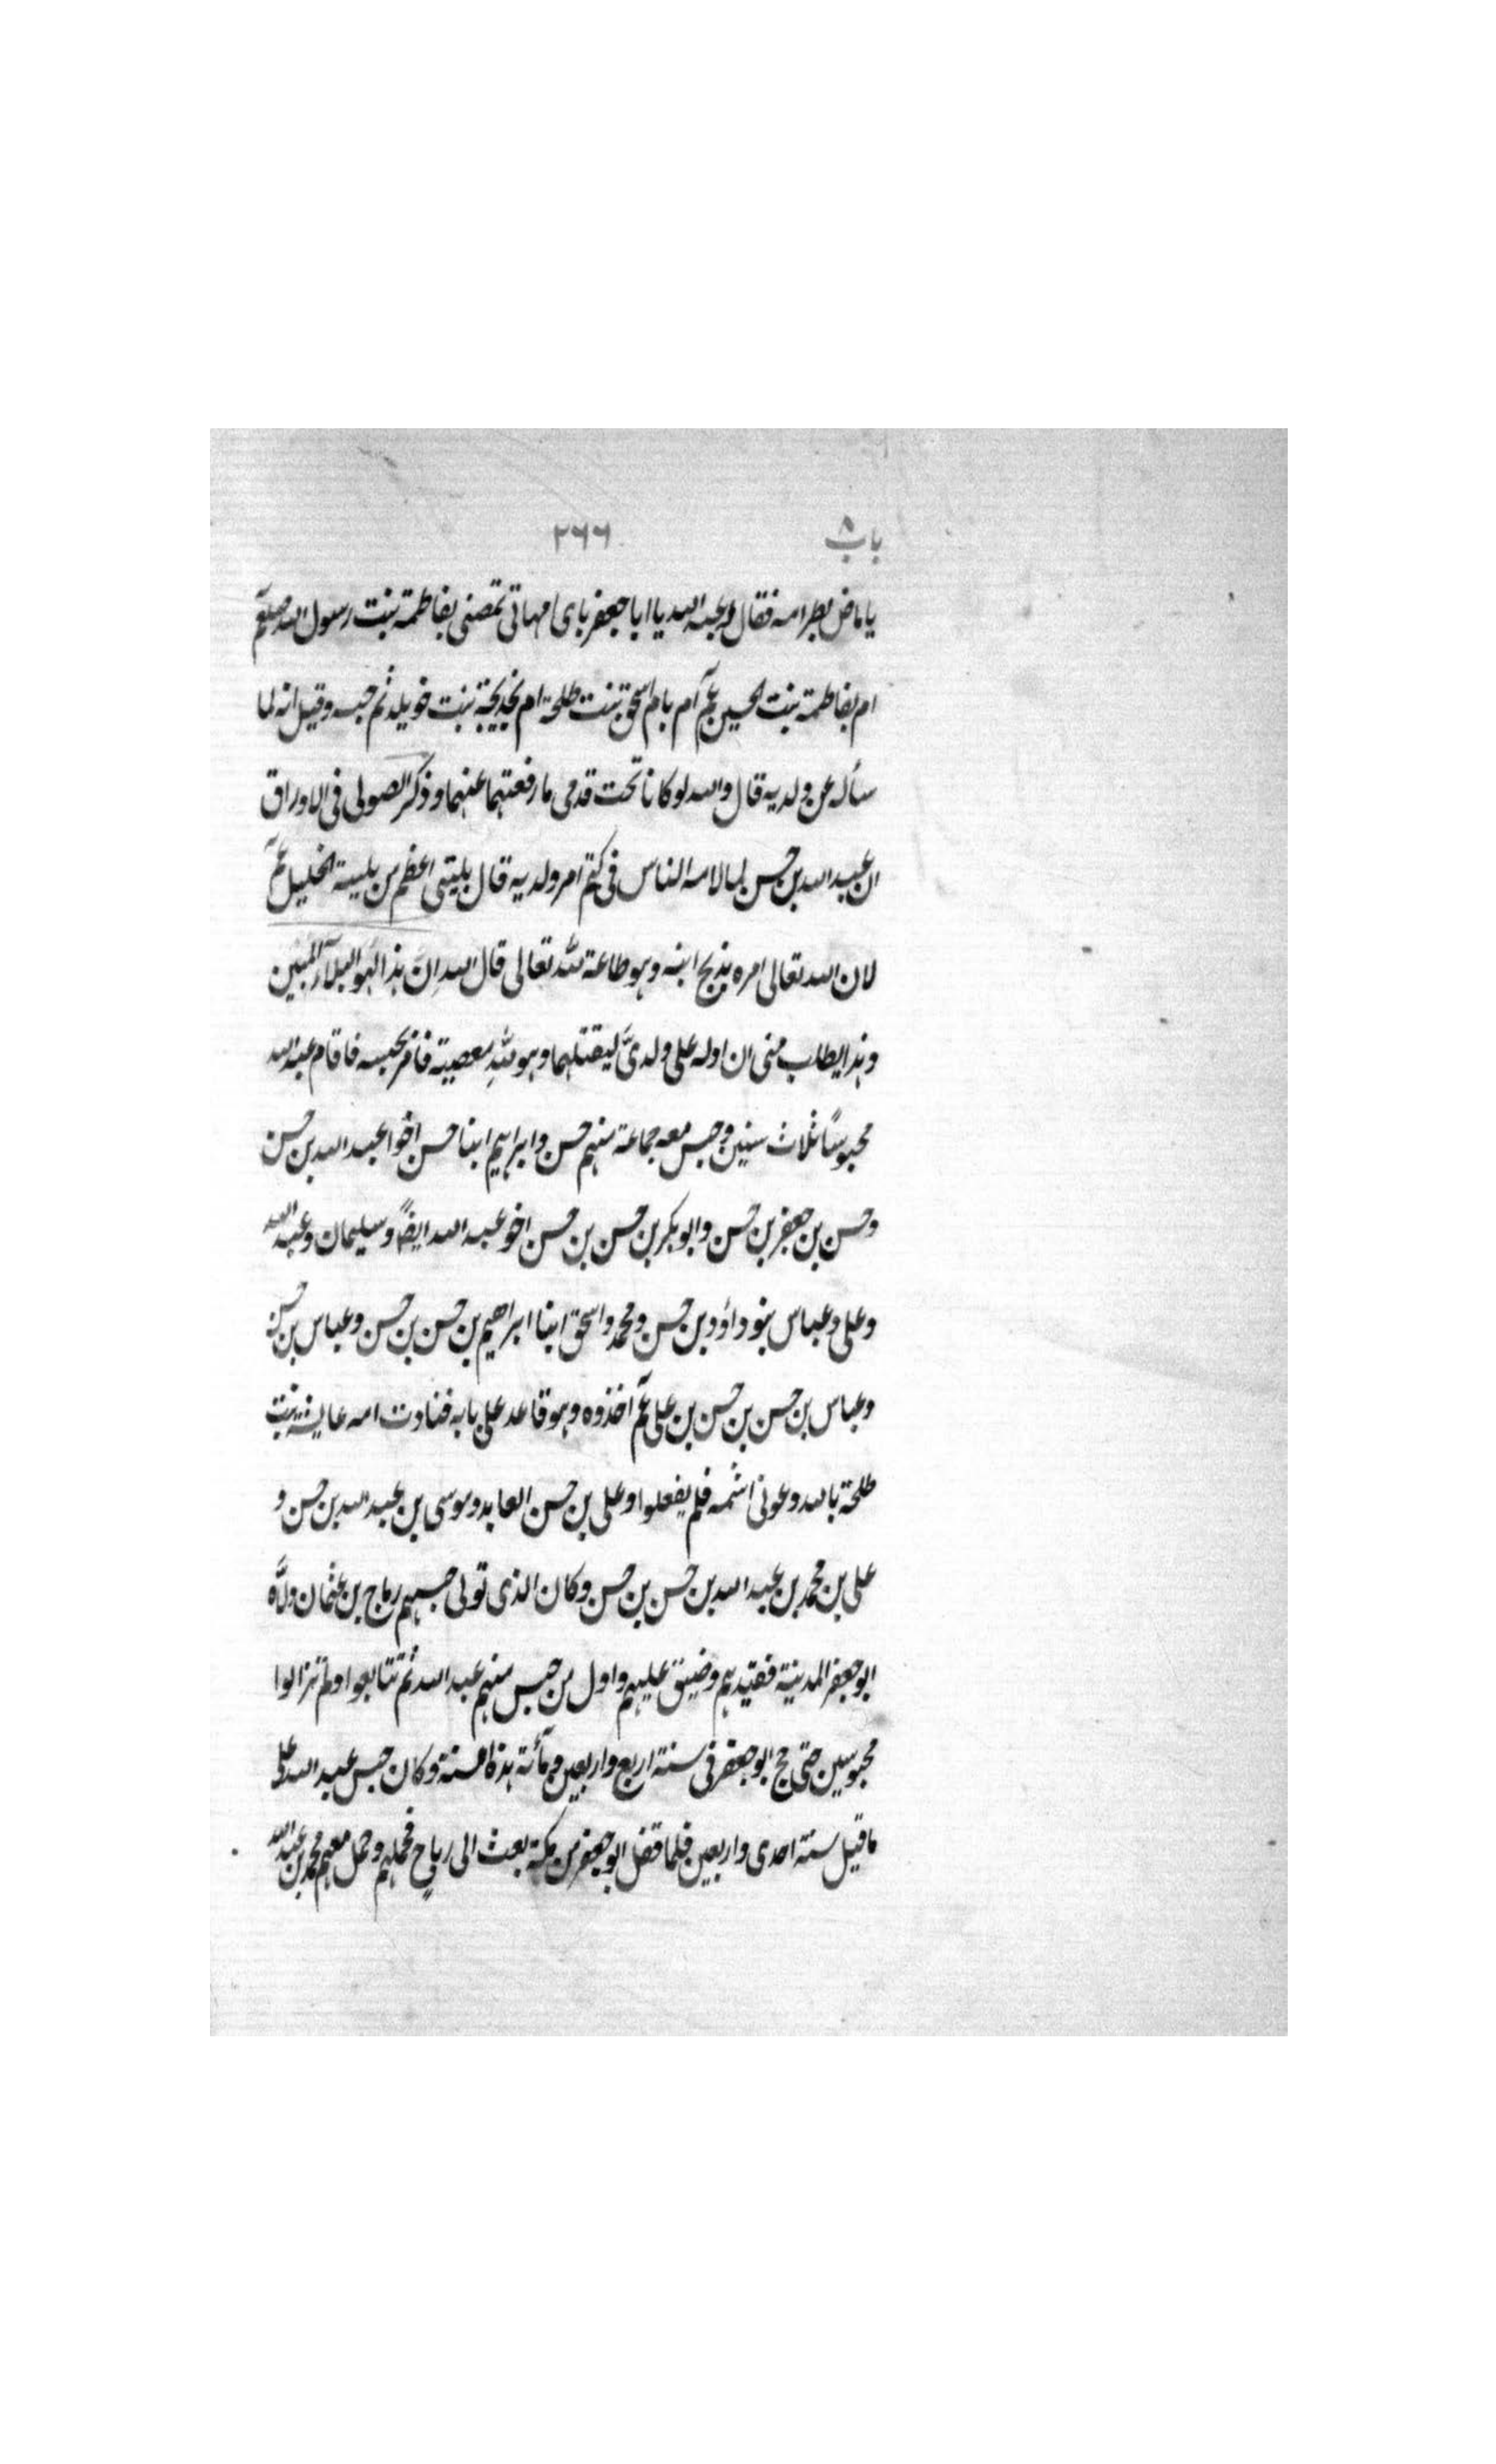 باب ٨ ٢٦٦
يا ماض بظر امه فقال له عبد الله يا ابا جعفر باى امهاتى تمصنى بفاطمة بنت رسول الله صلعم
ام بفاطمة بنت الحسين عم آم بام اسحق بنت طلحة ام بخديجة بنت خويلد ثم حبسه وقيل انه لما
سأله عن ولديه قال والله لو كانا تحت قدمى ما رفعتهما عنهما وذكر الصولى فى الاوراق
ان عبد الله بن حسن لما لامه الناس فى كتم امر ولديه قال بليتى اعظم من بلية الخليل عم
لان الله تعالى امره بذبح ابنه وهو طاعة لله تعالى قال الله اِنَّ هذا لهو البلآء المبين
وهذا يطلب منى ان ادله على ولدىَّ ليقتلهما وهو لله معصية فامر بحبسه فاقام عبد الله
محبوسًا ثلاث سنين وحبس معه جماعة منهم حسن وابراهيم ابنا حسن اخوا عبد الله بن حسن
وحسن بن جعفر بن حسن وابو بكر بن حسن بن حسن اخو عبد الله ايضًا وسليمان وعبد الله
وعلى وعباس بنو داؤد بن حسن ومحمد واسحق ابنا ابراهيم بن حسن بن حسن وعباس بن حسن
وعباس بن حسن بن حسن بن على عم اخذوه وهو قاعد على بابه فنادت امه عايشة بنت
طلحة بالله دعونى اشمه فلم يفعلوا وعلى بن حسن العابد وموسى بن عبد الله بن حسن و
على بن محمد بن عبد الله بن حسن بن حسن وكان الذى تولى حبسهم رياح بن عثمان ولّاه
ابو جعفر المدينة فقيدهم وضيق عليهم واول من حبس منهم عبد الله ثم تتابعوا ولم تزالوا
محبوسين حتى حج ابو جعفر فى سنة اربع واربعين ومأئة هذه السنة وكان حبس عبد الله على
ما قيل سنة احدى واربعين فلما قفل ابو جعفر من مكة بعث الى رياح فحملهم وحمل معهم محمد بن عبد الله